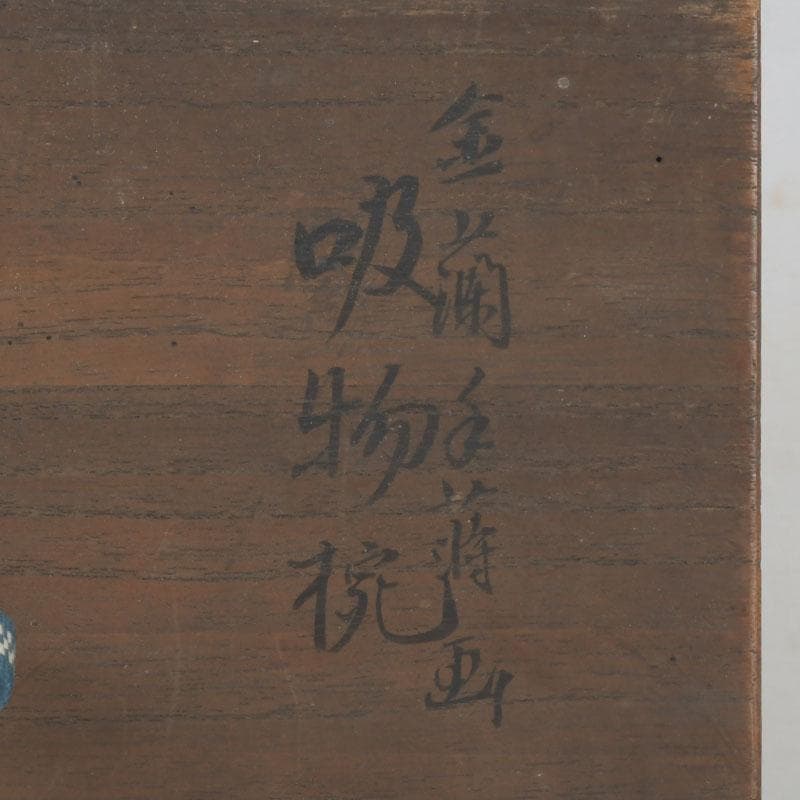 金蘭手蒔画
吸物椀